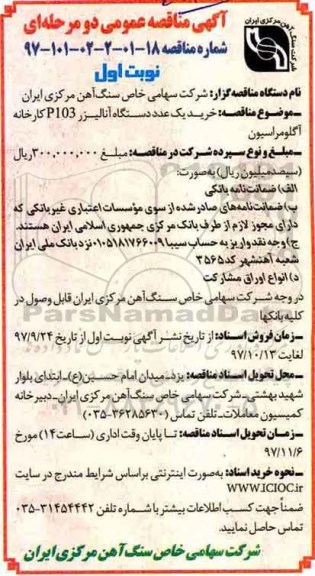 آگهی مناقصه عمومی دو مرحله‌ای
شماره مناقصه ۱۸-۰۱-۲-۰۲-۱۰۱-۹۷
نوبت اول
شرکت سنگ آهن مرکزی ایران
نام دستگاه مناقصه‌گزار: شرکت سهامی خاص سنگ‌آهن مرکزی ایران
ـ موضوع مناقصه: خرید یک عدد دستگاه آنالیزر P103 کارخانه
آگلومراسیون
ـ مبلغ و نوع سپرده شرکت در مناقصه: مبلغ ۳۰۰,۰۰۰,۰۰۰ ریال
(سیصد میلیون ریال) به‌صورت:
الف) ضمانت‌نامه بانکی
ب) ضمانت‌نامه‌های صادر شده از سوی مؤسسات اعتباری غیربانکی که
دارای مجوز لازم از طرف بانک مرکزی جمهوری اسلامی ایران هستند.
ج) وجه نقد واریز به حساب سیبا ۰۱۰۵۱۸۱۷۶۶۰۰۹ نزد بانک ملی ایران
شعبه آهنشهر کد ۳۵۶۵
د) انواع اوراق مشارکت
در وجه شرکت سهامی خاص سنگ‌آهن مرکزی ایران قابل وصول در
کلیه بانکها
ـ زمان فروش اسناد: از تاریخ نشر آگهی نوبت اول از تاریخ ۹۷/۹/۲۴
لغایت ۹۷/۱۰/۱۳
ـ محل تحویل اسناد مناقصه: یزد ـ میدان امام حسین(ع) ـ ابتدای بلوار
شهید بهشتی ـ شرکت سهامی خاص سنگ‌آهن مرکزی ایران ـ دبیرخانه
کمیسیون معاملات ـ تلفن تماس (۳۶۲۸۵۶۳۰-۰۳۵)
ـ زمان تحویل اسناد مناقصه: تا پایان وقت اداری (ساعت ۱۴) مورخ
۹۷/۱۱/۶
ـ نحوه خرید اسناد: به‌صورت اینترنتی براساس شرایط مندرج در سایت
WWW.ICIOC.ir
ضمناً جهت کسب اطلاعات بیشتر با شماره تلفن ۳۱۴۵۴۴۴۲-۰۳۵
تماس حاصل نمایید.
شرکت سهامی خاص سنگ آهن مرکزی ایران
ParsNamadData